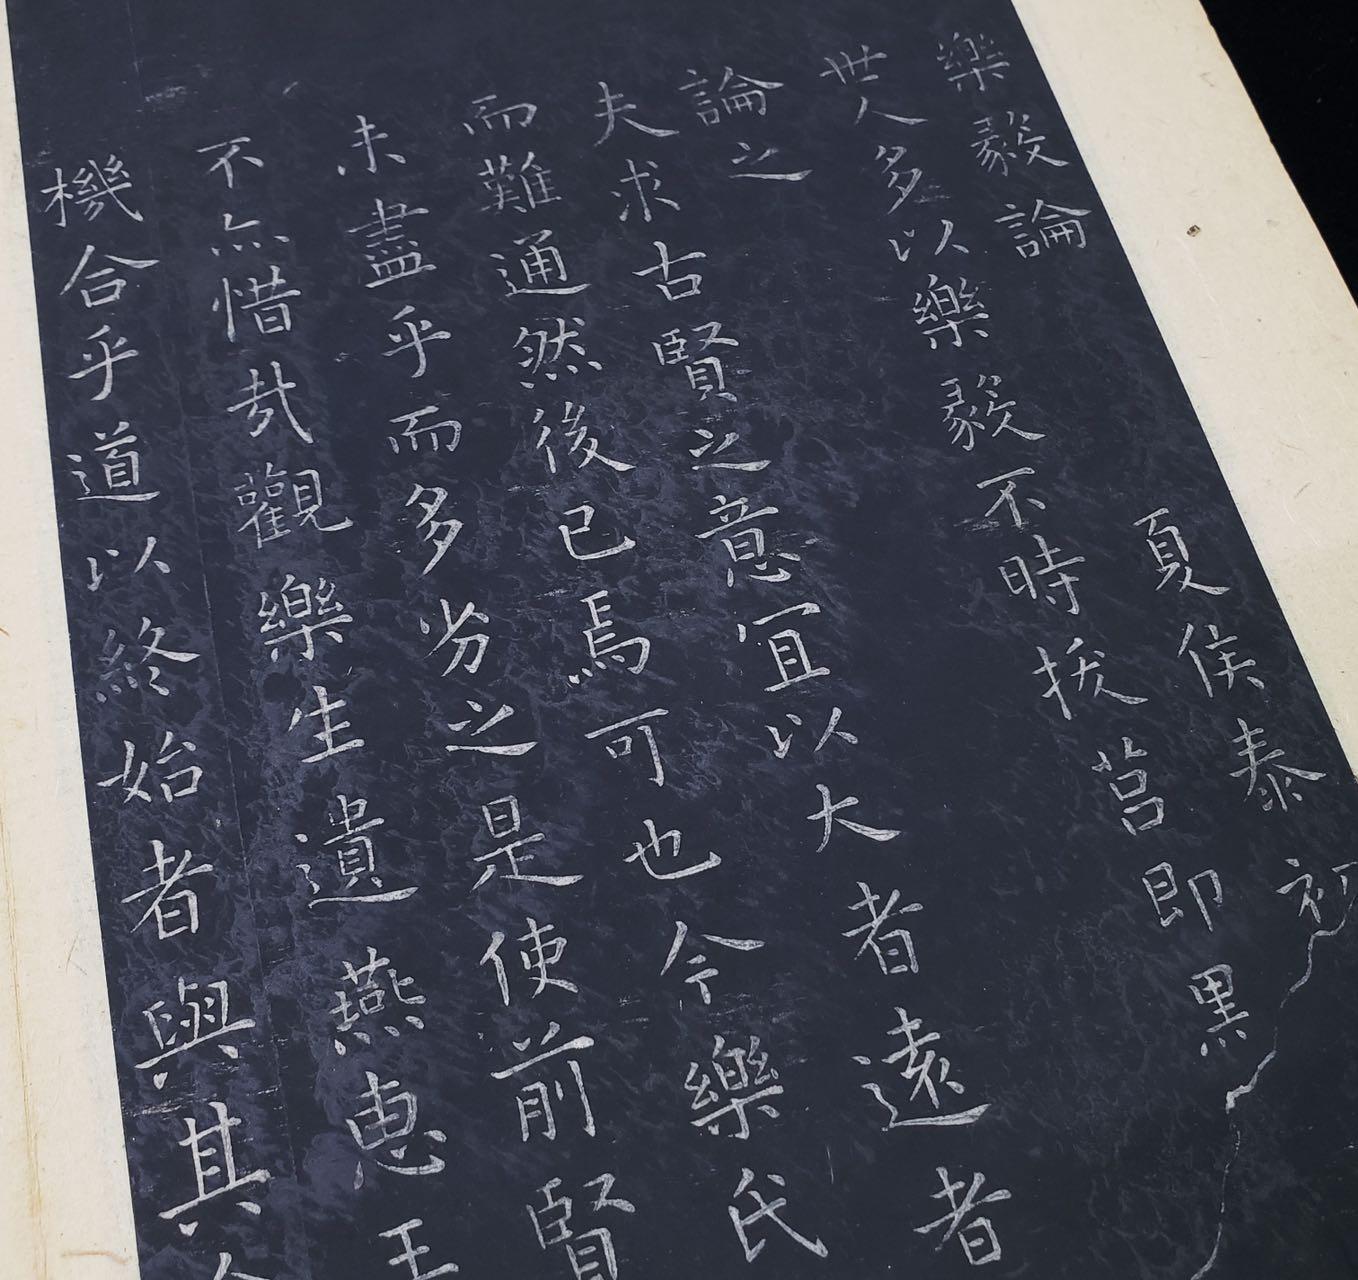 樂毅論 夏侯泰初
世人多以樂毅不時拔莒即黑
論之
夫求古賢之意宜以大者遠者
而難通然後已焉可也今樂氏
未盡乎而多劣之是使前賢
不亦惜哉觀樂生遺燕惠王
機合乎道以終始者與其